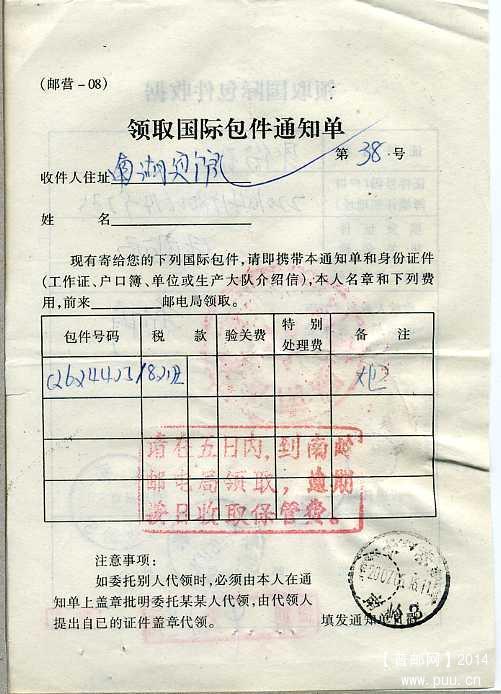 (邮营-08)
领取国际包件通知单
第 38 号
收件人住址 南湖宾馆
姓 名
现有寄给您的下列国际包件,请即携带本通知单和身份证件
(工作证、户口簿、单位或生产大队介绍信),本人名章和下列费
用,前来 邮电局领取。
包件号码 税 款 验关费 特 别 处理费 备 注
请在五日内,到南岭
邮电局领取,逾期
按日收取保管费。
注意事项:
如委托别人代领时,必须由本人在通
知单上盖章批明委托某某人代领,由代领人
提出自己的证件盖章代领。
填发通知
【首邮网】2014
www.puu.cn